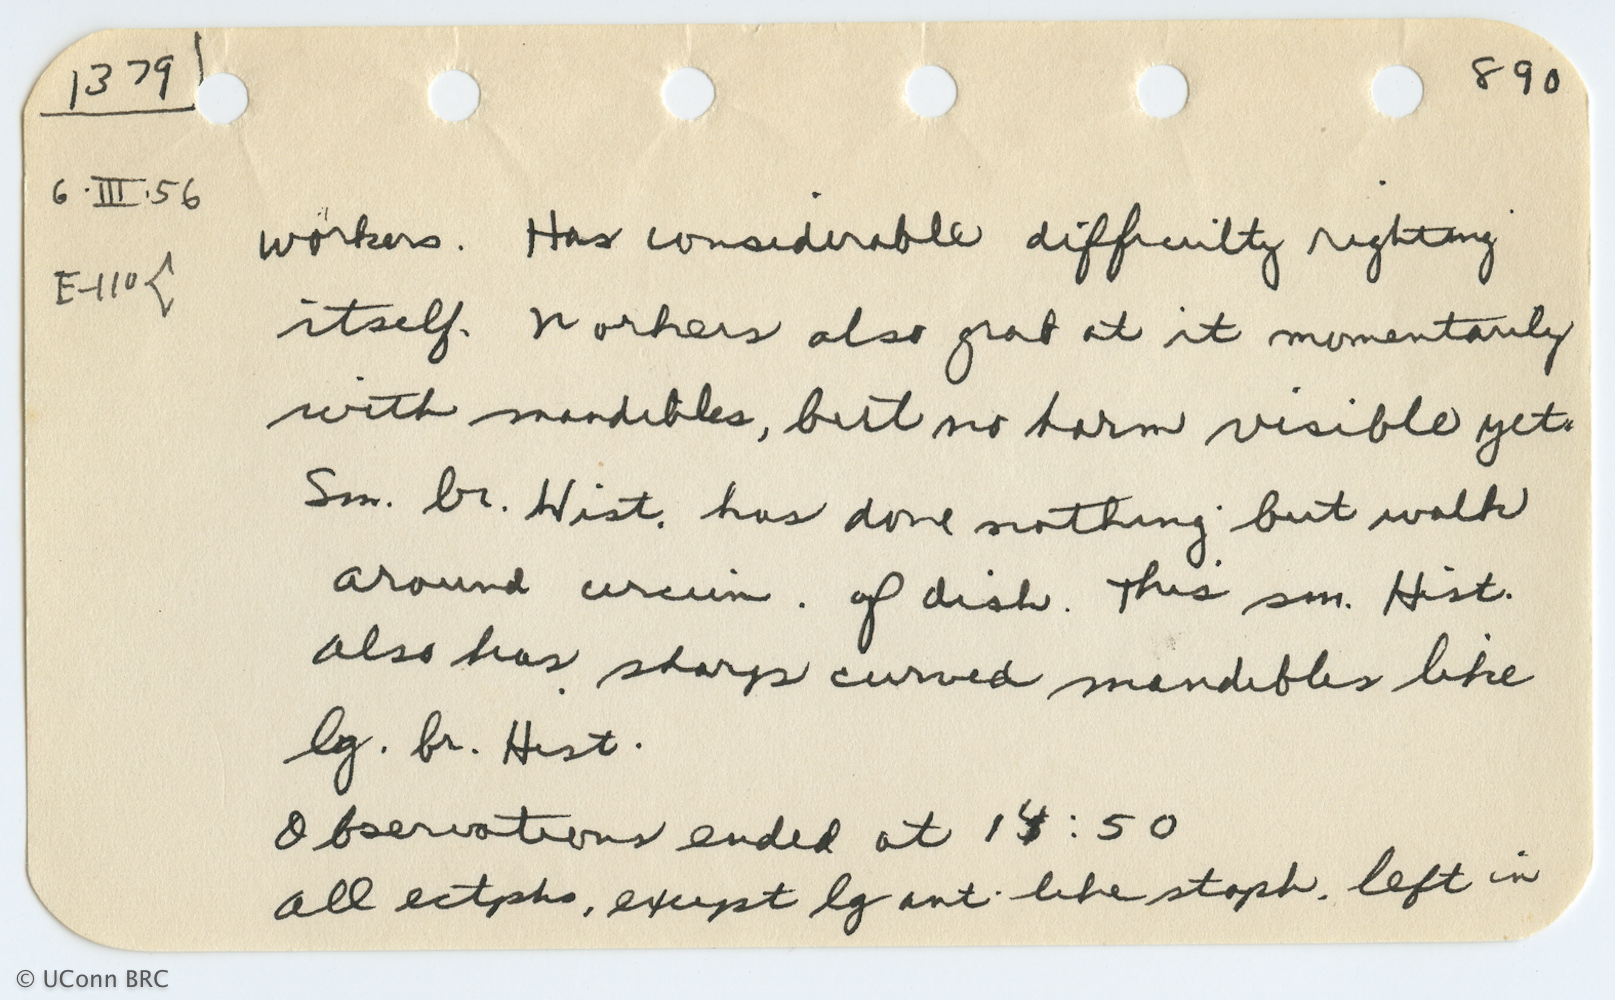 1379
890
6·III·56
workers. Has considerable difficulty righting
E-110{
itself. Workers also grab at it momentarily
with mandibles, but no harm visible yet.
Sm. br. Hist. has done nothing but walk
around circum. of dish. This sm. Hist.
also has sharp curved mandibles like
lg. br. Hist.
Observations ended at :50
All ectphs, except lg ant-like staph. left in
© UConn BRC